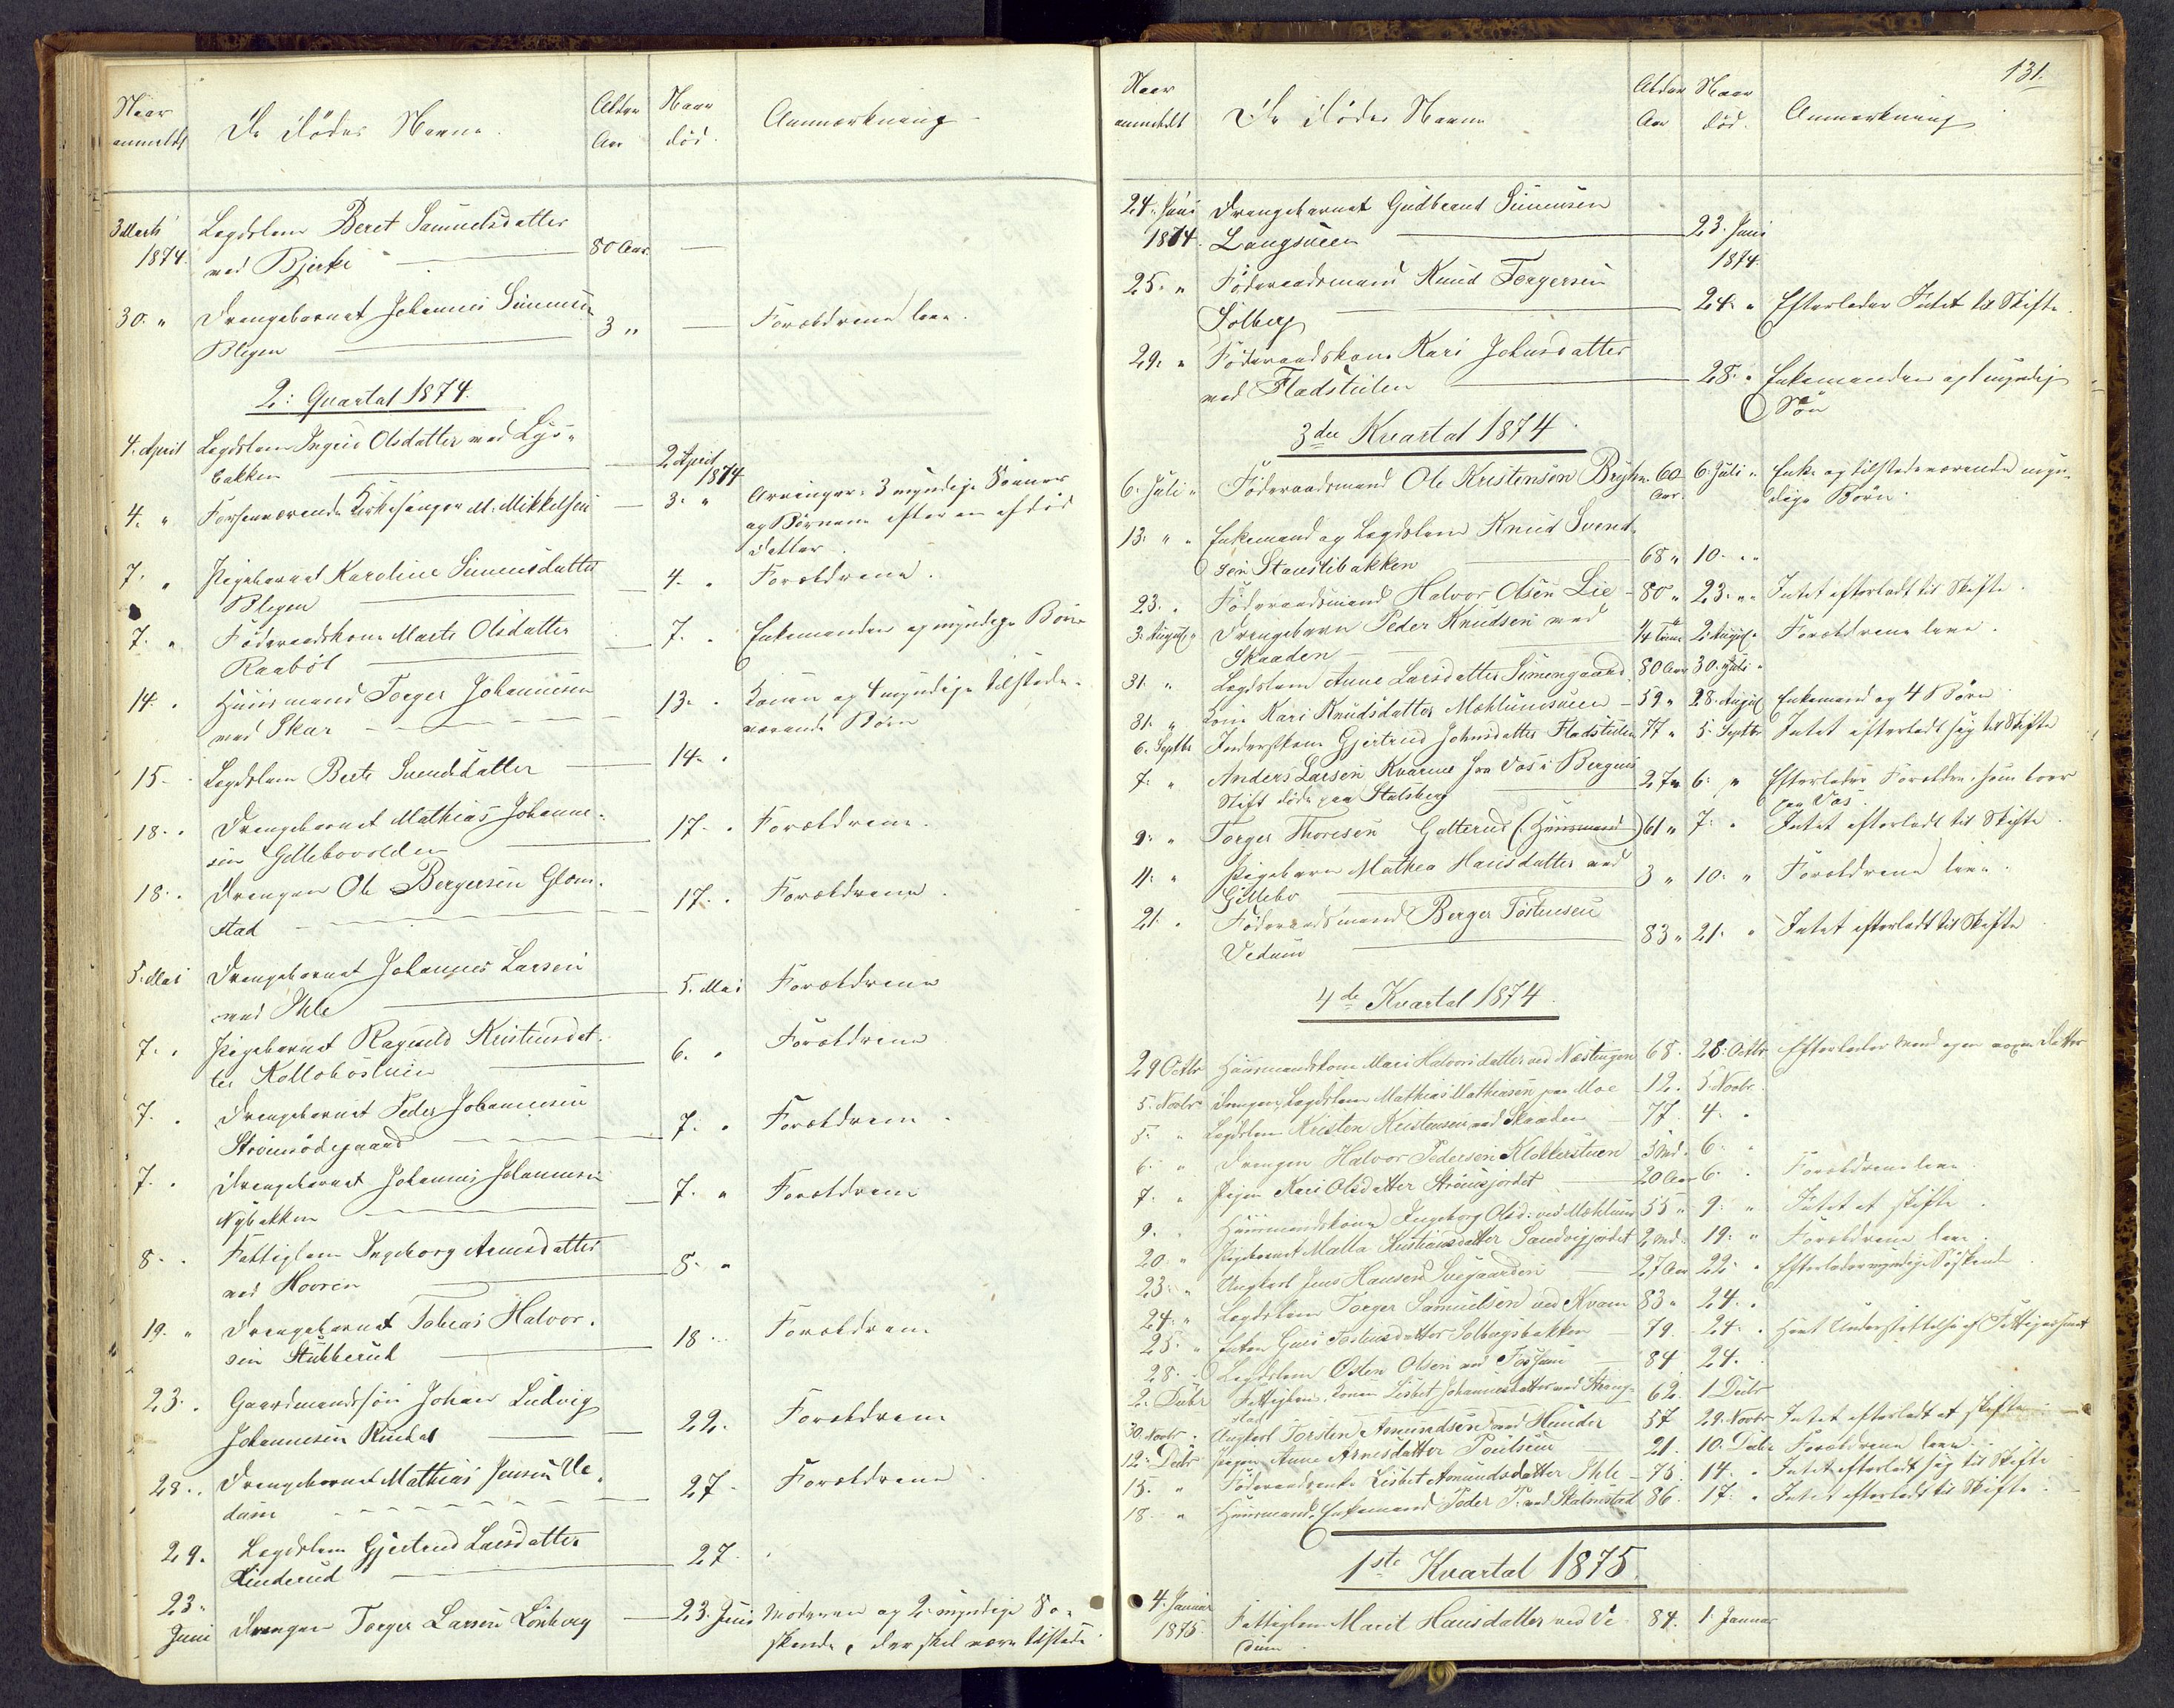 Naar anmeldt De Dödes Navne. Alder Aar Naar död. Anmærkning
3 Marts 1874. Lægdslem Beret Samuelsdatter
ved Bjerke — 80 Aar. —
30. " Drengebarnet Johannes Simensen
Blegen — 3 " — Forældrene leve.
2: Quartal 1874.
4. April Lægdslem Ingrid Olsdatter ved Lys-
bakken — 2 April 1874
4. " Forhenværende Kirkesanger M. Mikkelsen — 3. " Arvinger: 3 myndige Sønner
og Børnene efter en afdød
Datter.
7. " Pigebarnet Karoline Simensdatter
Blegen — 4. " Forældrene.
7. " Föderaadskone Marte Olsdatter
Raaböl — 7. " Enkemanden og myndige Börn
14. " Huusmand Torger Johannesen
ved Skar — 13. " Konen og 4 myndige tilstede-
værende Börn
15. " Lægdslem Berte Svendsdatter — 14. "
18. " Drengebarnet Mathias Johanne-
sen Gillebovolden — 17. " Forældrene.
18. " Drengen Ole Bergersen Glom-
stad — 17. " Forældrene.
5. Mai Drengebarnet Johannes Larsen
ved Ihle — 5. Mai Forældrene
7. " Pigebarnet Ragnild Kristensdat-
ter Kolloböstuen — 6. " Forældrene
7. " Drengebarnet Peder Johannesen
Strömsödegaard — 7. " Forældrene
7. " Drengebarnet Johannes Johannesen
Nybakken — 7. " Forældrene
8. " Fattiglem Ingeborg Arnesdatter
ved Hovren — 8. "
19. " Drengebarnet Tobias Halvor-
sen Stubberud — 18 " Forældrene
23. " Gaardmandssön Johan Ludvig
Johannesen Rindal — 22. Forældrene
28. " Drengebarnet Mathias Jensen Ve-
dum — 27. Forældrene
29. Lægdslem Gjertrud Larsdatter
Linderud — 27. "
23. Juni Drengen Torger Larsen Lönberg — 23. Juni Moderen og 2 myndige Sö-
skende, der skal være tilstede
131.
Naar anmeldt De Dödes Navne Alder Aar Naar död. Anmærkning
24. Juni 1874. Drengebarnet Gudbrand Simensen
Langsveen — 23. Juni 1874.
25. " Föderaadsmand Knud Torgersen
Solberg — 24. " Efterlader Intet til Skifte.
29. " Föderaadskone Kari Johnsdatter
ved Fladstulen — 28. " Enkemanden og 1 myndig
Sön
3die Kvartal 1874.
6. Juli " Föderaadsmand Ole Kristensön Bryhn. 60 Aar. 6. Juli " Enke og tilstedeværende myn-
dige Börn.
13. " " Enkemand og Lægdslem Knud Svend-
sen Staustibakken — 68 " 10. " "
23. " Föderaadsmand Halvor Olsen Lie — 80 " 23. " " Intet efterladt til Skifte.
3. August " Drengebarn Peder Knudsen ved
Skaaden — 1/4 Time 2. August " Forældrene leve.
31. " Lægdslem Anne Larsdatter Simengaard. 80 Aar 30. Juli "
31. " Kone Kari Knudsdatter Mæhlumsveen — 59 " 28. August Enkemand og 4 Börn
6. Septbr Inderstkone Gjertrud Johnsdatter Fladstulen 77 " 5. Septbr Intet efterladt sig til Skifte
7. " Anders Larsen Kvarme fra Vos i Bergens
Stift döde paa Stalsberg — 27 " 6. " Efterlader Forældre, som boer
paa Vos.
9. " Torger Thoresen Galterud (Huusmand) 61 " 7. " Intet efterladt til Skifte.
11. " Pigebarn Mathea Hansdatter ved
Gillebo — 3 " 10. " Forældrene leve.
21. " Föderaadsmand Berger Tostensen
Vedum — 83 " 21. " Intet efterladt til Skifte
4de Kvartal 1874.
29 Octbr Huusmandskone Mari Halvorsdatter ved Næstingen 68. 28. Octbr Efterlader Mand og en voxen Datter
5. Novbr Drengen, Lægdslem Mathias Mathiasen paa Moe — 12. 5. Novbr.
5. " Lægdslem Kristen Kristensen ved Skaaden — 77. 4. "
6. " Drengen Halvor Pedersen Klokkerstuen — 3 Md. 6. "
7. " Pigen Kari Olsdatter Strömsjordet — 20 Aar 6. " Forældrene leve.
9. " Huusmandskone Ingeborg Olsd: ved Mæhlum 55 " 9. " Intet at skifte.
20. " Pigebarnet Malla Kristiansdatter Sandvigjordet 2 Md. 19. " Forældrene leve.
23. " Ungkarl Jens Hansen Svegaarden — 27 Aar 22. " Efterlader myndige Söskende.
24. " Lægdslem Torger Samuelsen ved Kvam 83 " 24. "
25. " Enken Guri Tostensdatter Solbergsbakken — 79. 24. " Havt Understöttelse af Fattigvæsenet
28. " Lægdslem Østen Olsen ved Fossum — 84 24.
2. Decbr Fattiglem, Konen Lisbet Johannesdatter ved Strang-
stad 62. 1 Decbr
30 Novbr. Ungkarl Torsten Amundsen ved Hunder 57 29. Novbr Intet efterladt at skifte
12. Decbr Pigen Anne Arnesdatter Poulsveen — 21. 10. Decbr Forældrene leve.
15. " Föderaadsenke Lisbet Amundsdatter Ihle — 75. 14. " Intet efterladt sig til Skifte
18. " Huusmand, Enkemand Peder P. ved Skalmstad 86. 17. " Intet efterladt til Skifte.
1ste Kvartal 1875.
4. Januar 1875. Fattiglem Marit Hansdatter ved Ve-
dum 84. 1. Januar